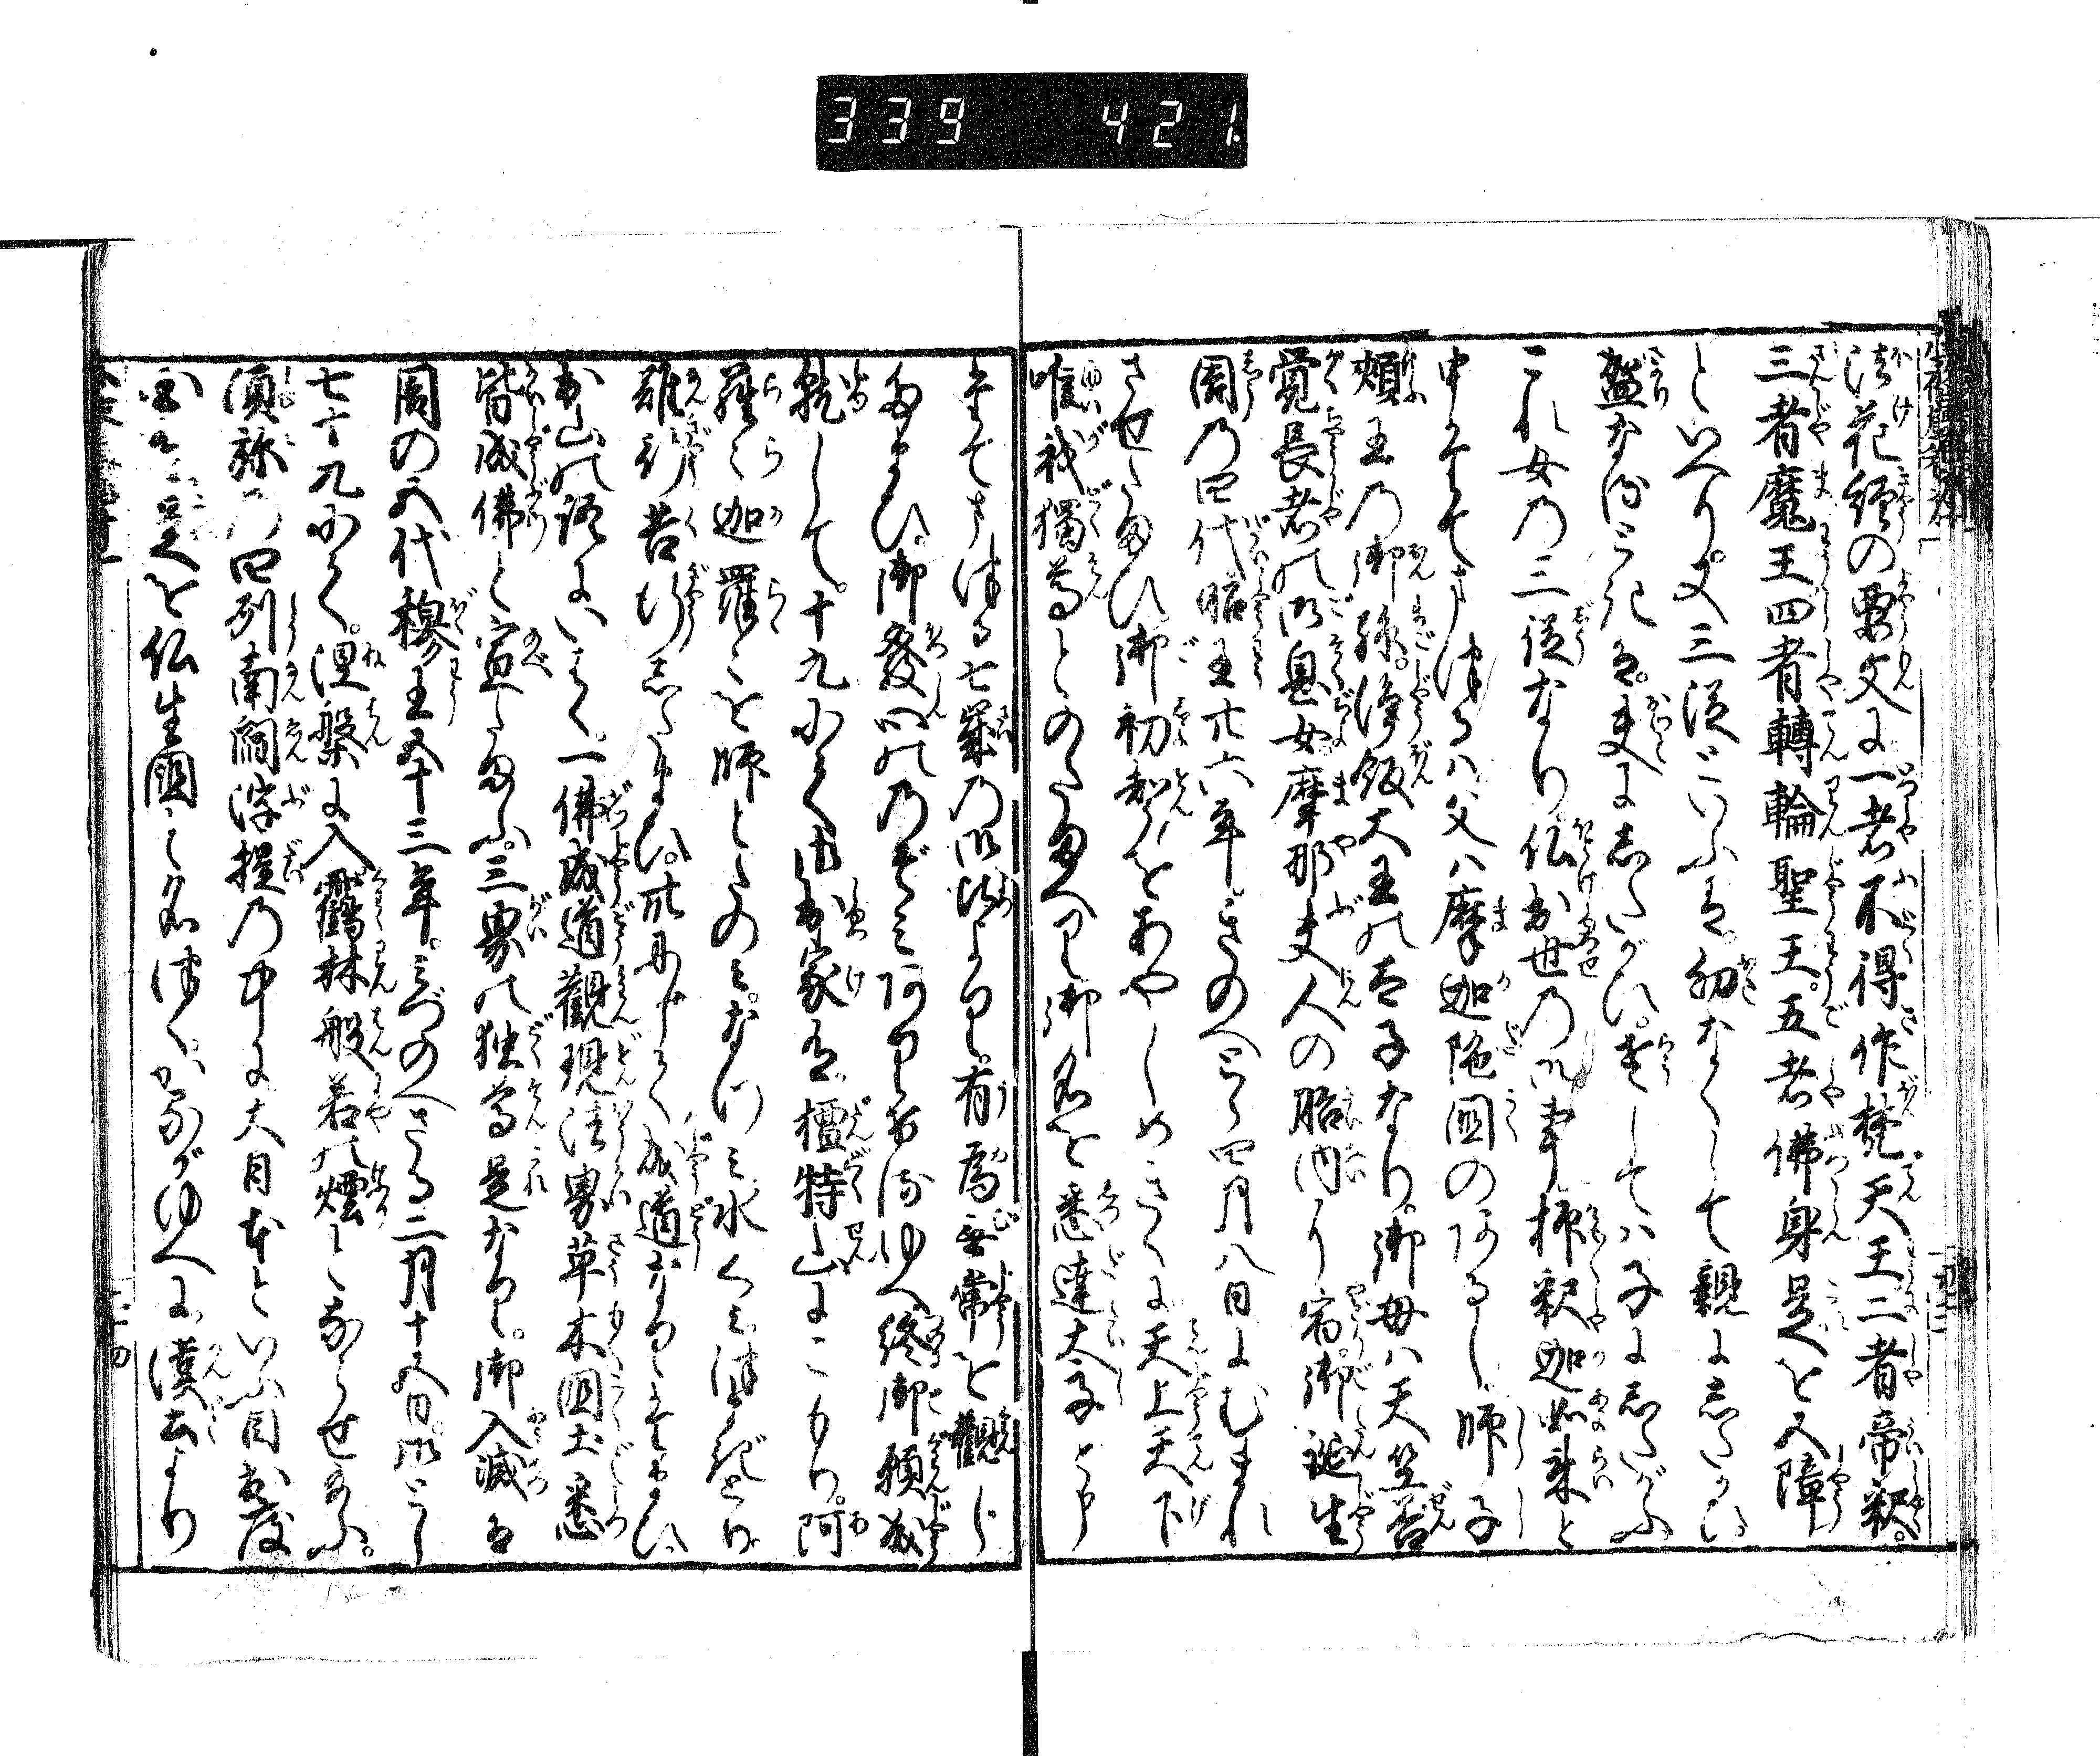 339 421
法花経の要文に一者不得作梵天王二者帝釈。
三者魔王四者轉輪聖王。五者佛身是を五障
といへり又三従といふは。幼なくして親にしたがひ
盛なる時は。夫にしたがひ。老しては子にしたがふ
これ女の三従なり仏出世の御事抑釈迦如来と
申奉るは父は摩迦陀國のあるじ師子
頬王の御孫。浄飯大王の太子なり。御母は天竺善
覚長者の御息女摩耶夫人の胎内に宿。御誕生
周の四代昭王廿六年きのへとら四月八日にむまれ
させ給ひ御初声をあやしめきくに天上天下
唯我獨尊とのたまへり御名を悉達太子と申
七歳の御時より。有為無常を観じ
給ひ。御発心ののぞみあり終御願成
就して。十九にて御出家有。檀特山にこもり。阿
羅々迦羅々を師とたのみ。なつみ水くみ
難行苦行したまひ。卅にして成道なり給ひ
出山の語にいはく一佛成道観現法界草木国土悉
皆成佛と宣給ふ。三界の独尊是なり。御入滅は
周の五代穆王五十三年。みづのへさる二月十五日。御とし
七十九にて。涅槃に入靏林般若の煙とならせ給ふ。
須弥の四列南閻浮提の中に大月本といふ月出度
国有是を仏生國と名付く。かるがゆへに漢土より